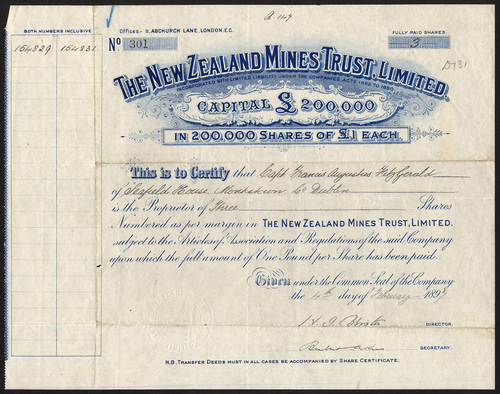 A 149
BOTH NUMBERS INCLUSIVE
154829 154831
Offices:- 11, ABCHURCH LANE, LONDON, E.C.
FULLY PAID SHARES.
No 301
3
THE NEW ZEALAND MINES TRUST, LIMITED.
INCORPORATED WITH LIMITED LIABILITY UNDER THE COMPANIES ACTS, 1862 TO 1890
CAPITAL £ 200,000
IN 200,000 SHARES OF £1 EACH
This is to Certify that Capt Francis Augustus FitzGerald
of Seafield House Monkstown Co Dublin
is the Proprietor of Three Shares
Numbered as per margin in THE NEW ZEALAND MINES TRUST, LIMITED.
subject to the Articles of Association and Regulations of the said Company
upon which the full amount of One Pound per Share has been paid.
Given under the Common Seal of the Company
the 4th day of February 189
DIRECTOR.
SECRETARY.
N.B. TRANSFER DEEDS MUST IN ALL CASES BE ACCOMPANIED BY SHARE CERTIFICATE.